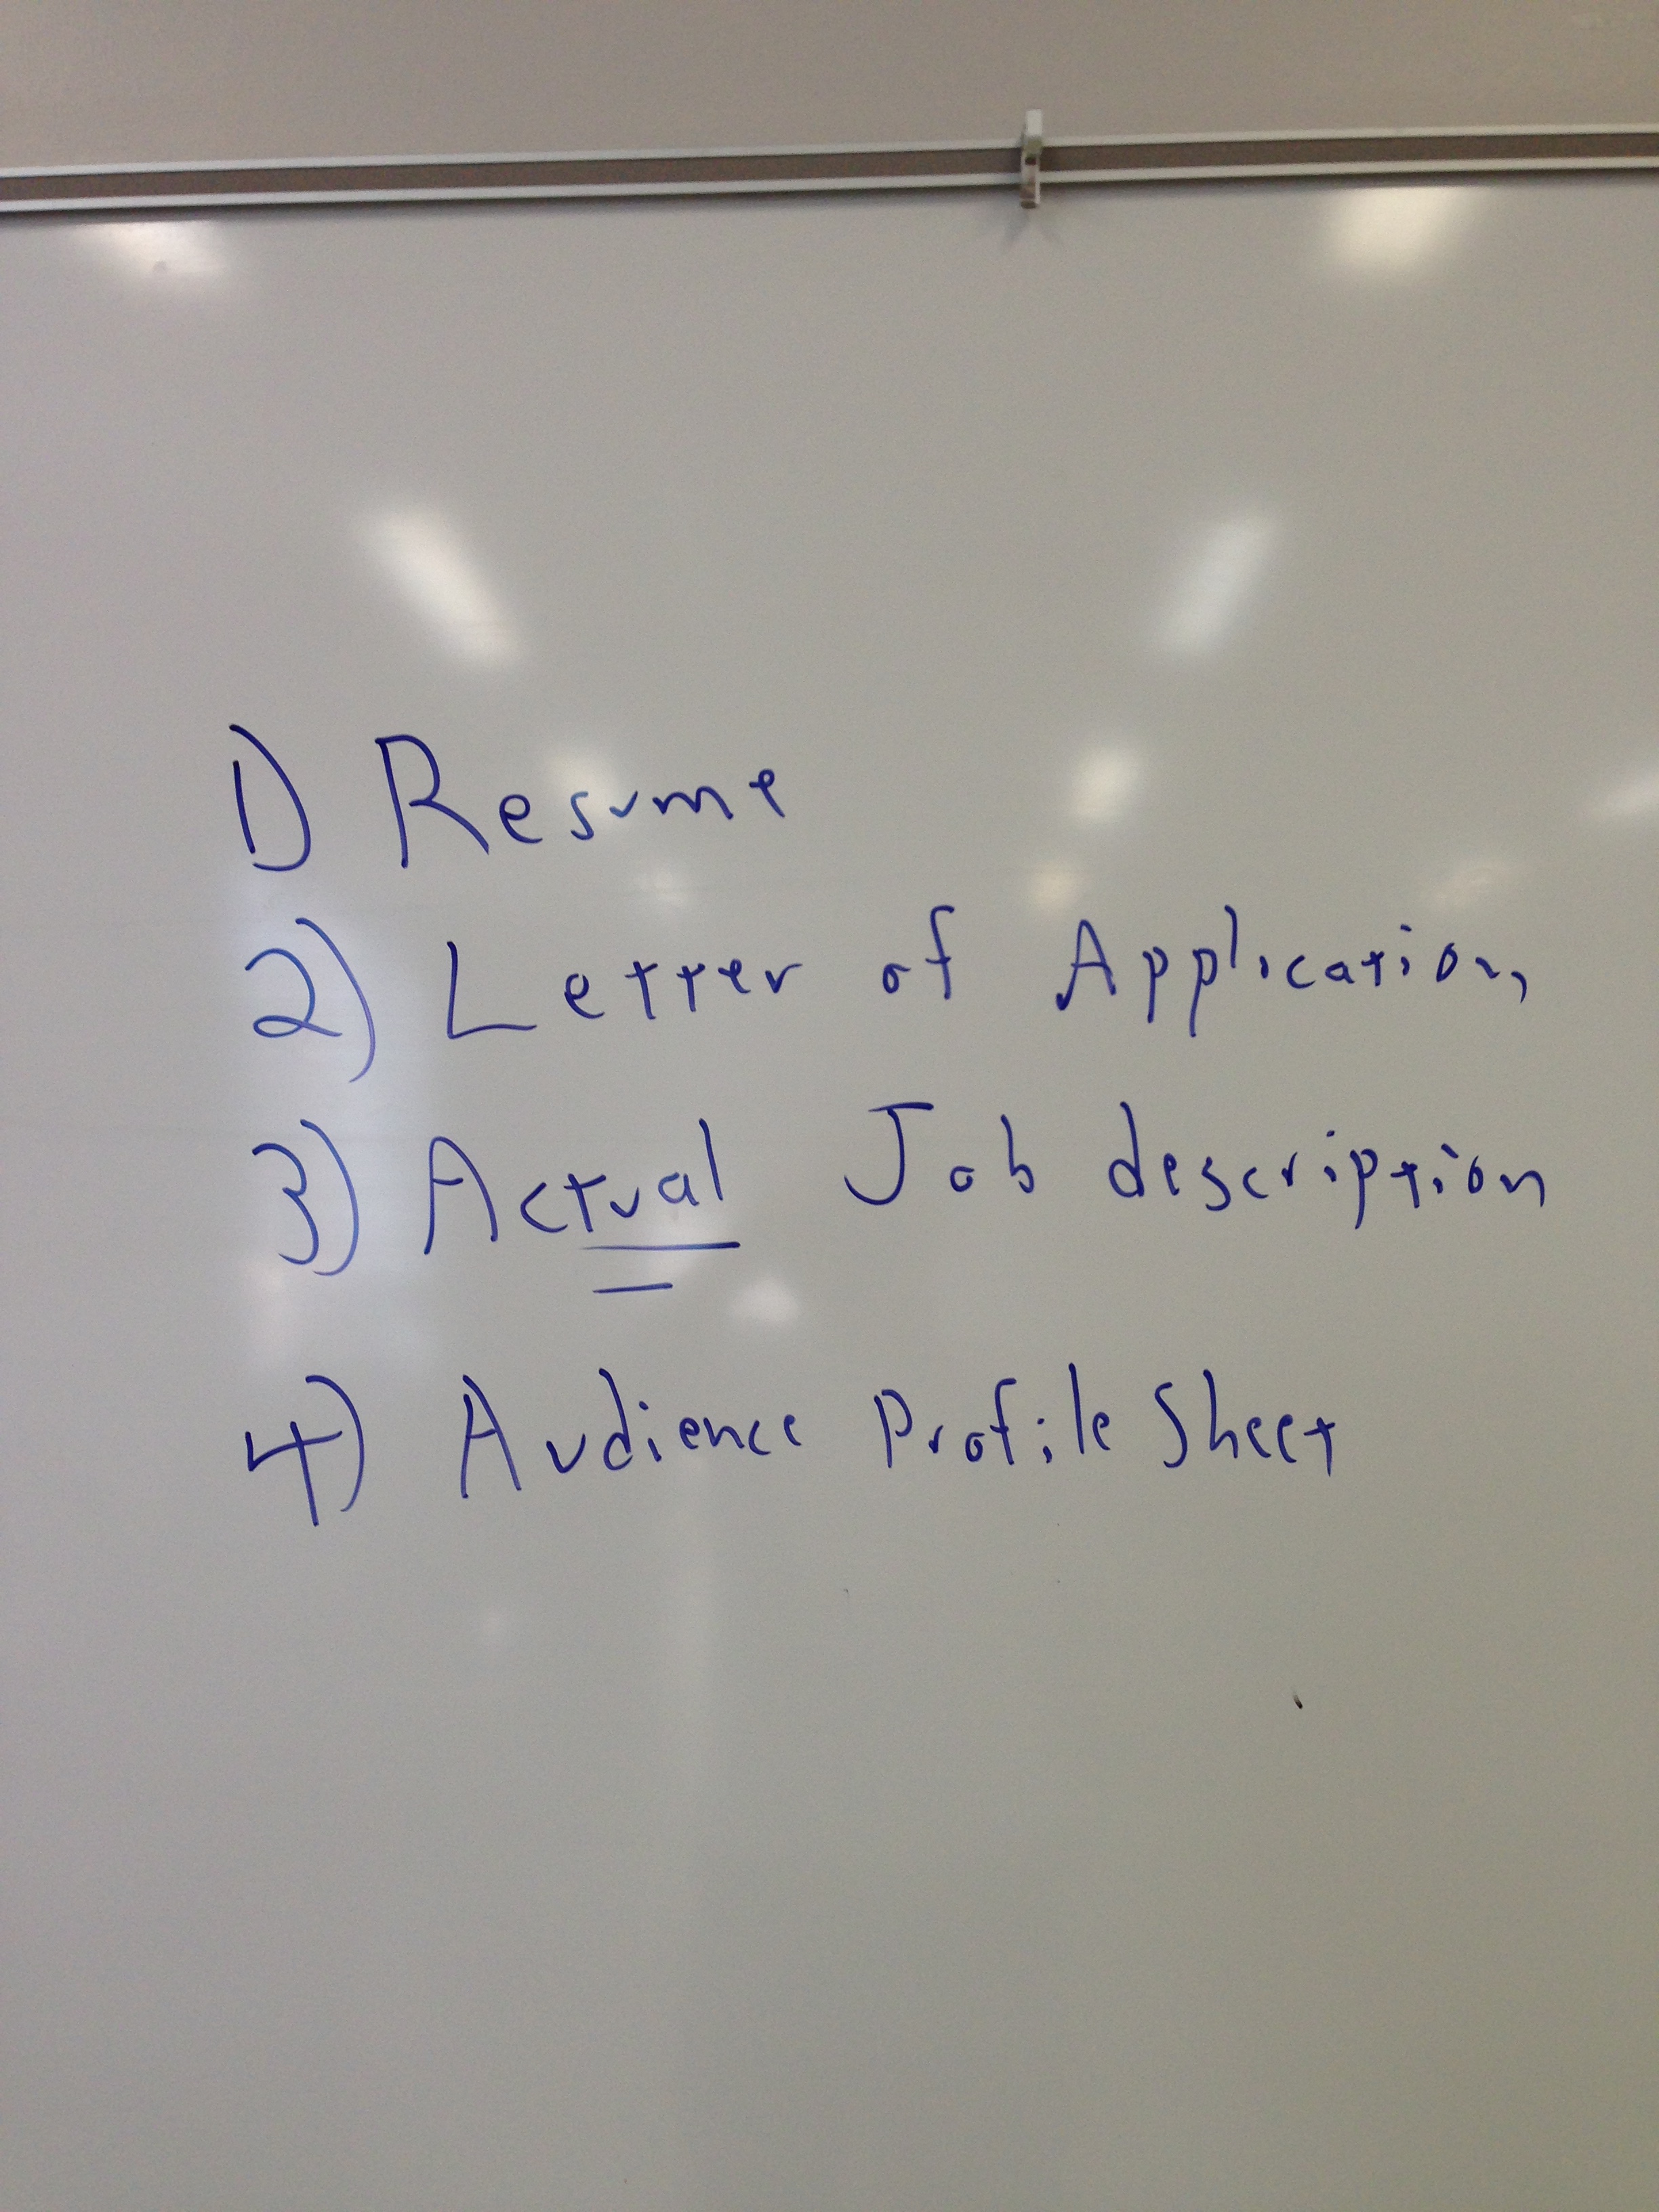 1) Resume
2) Letter of Application,
3) Actual Job description
4) Audience Profile Sheet